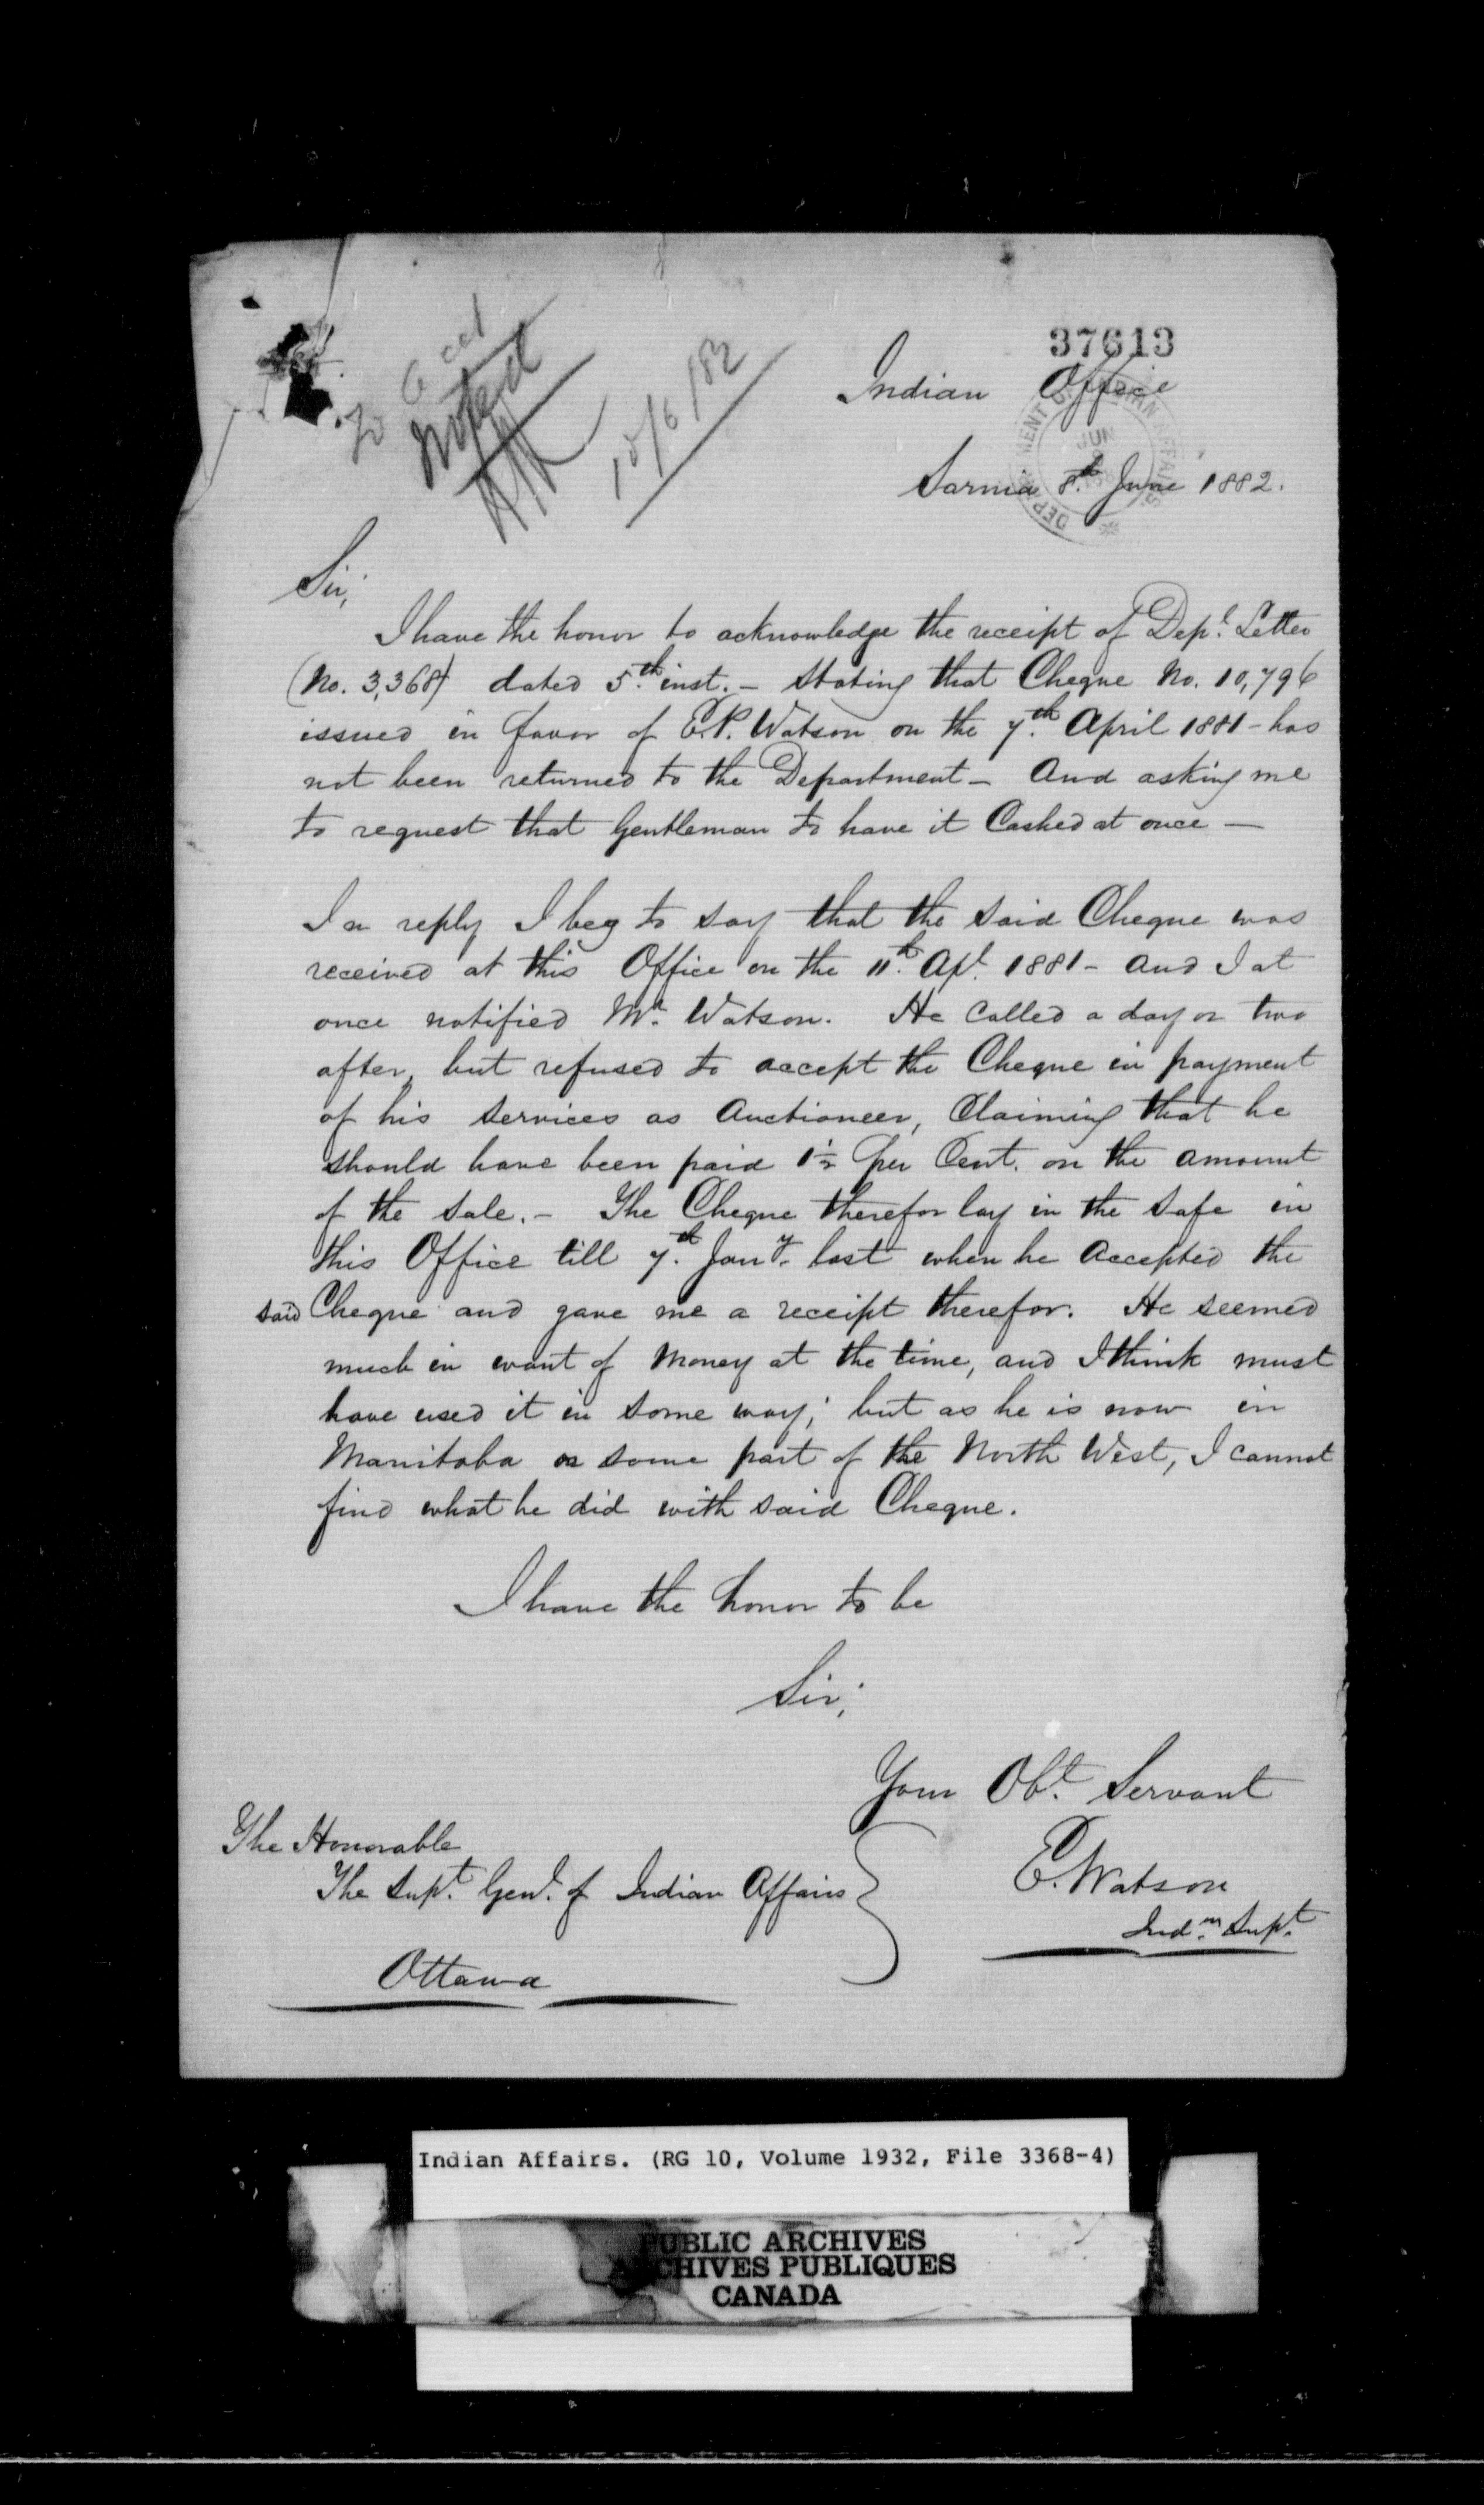 37613
To Acct
Noted
10/6/82
Indian Office
DEPARTMENT OF INDIAN AFFAIRS
JUN
Sarnia 8th June 1882.
Sir,
I have the honor to acknowledge the receipt of Dept. Letter
(No. 3,368) dated 5th inst. - Stating that Cheque No. 10,796
issued in favor of E.P. Watson on the 7th April 1881 - has
not been returned to the Department - And asking me
to request that Gentleman to have it Cashed at once —
In reply I beg to say that the said Cheque was
received at this Office on the 11th Apl. 1881 - and I at
once notified Mr. Watson. He called a day or two
after, but refused to accept the Cheque in payment
of his services as Auctioneer, Claiming that he
should have been paid 1½ per Cent. on the amount
of the sale. - The Cheque therefor lay in the safe in
this Office till 7th Jany. last when he accepted the
said Cheque and gave me a receipt therefor. He seemed
much in want of money at the time, and I think must
have used it in some way; but as he is now in
Manitoba or some part of the North West, I cannot
find what he did with said Cheque.
I have the honor to be
Sir;
Your Obt. Servant
E. Watson
Indn. Supt.
The Honorable
The Supt. Genl. of Indian Affairs
Ottawa
Indian Affairs. (RG 10, Volume 1932, File 3368-4)
PUBLIC ARCHIVES
ARCHIVES PUBLIQUES
CANADA